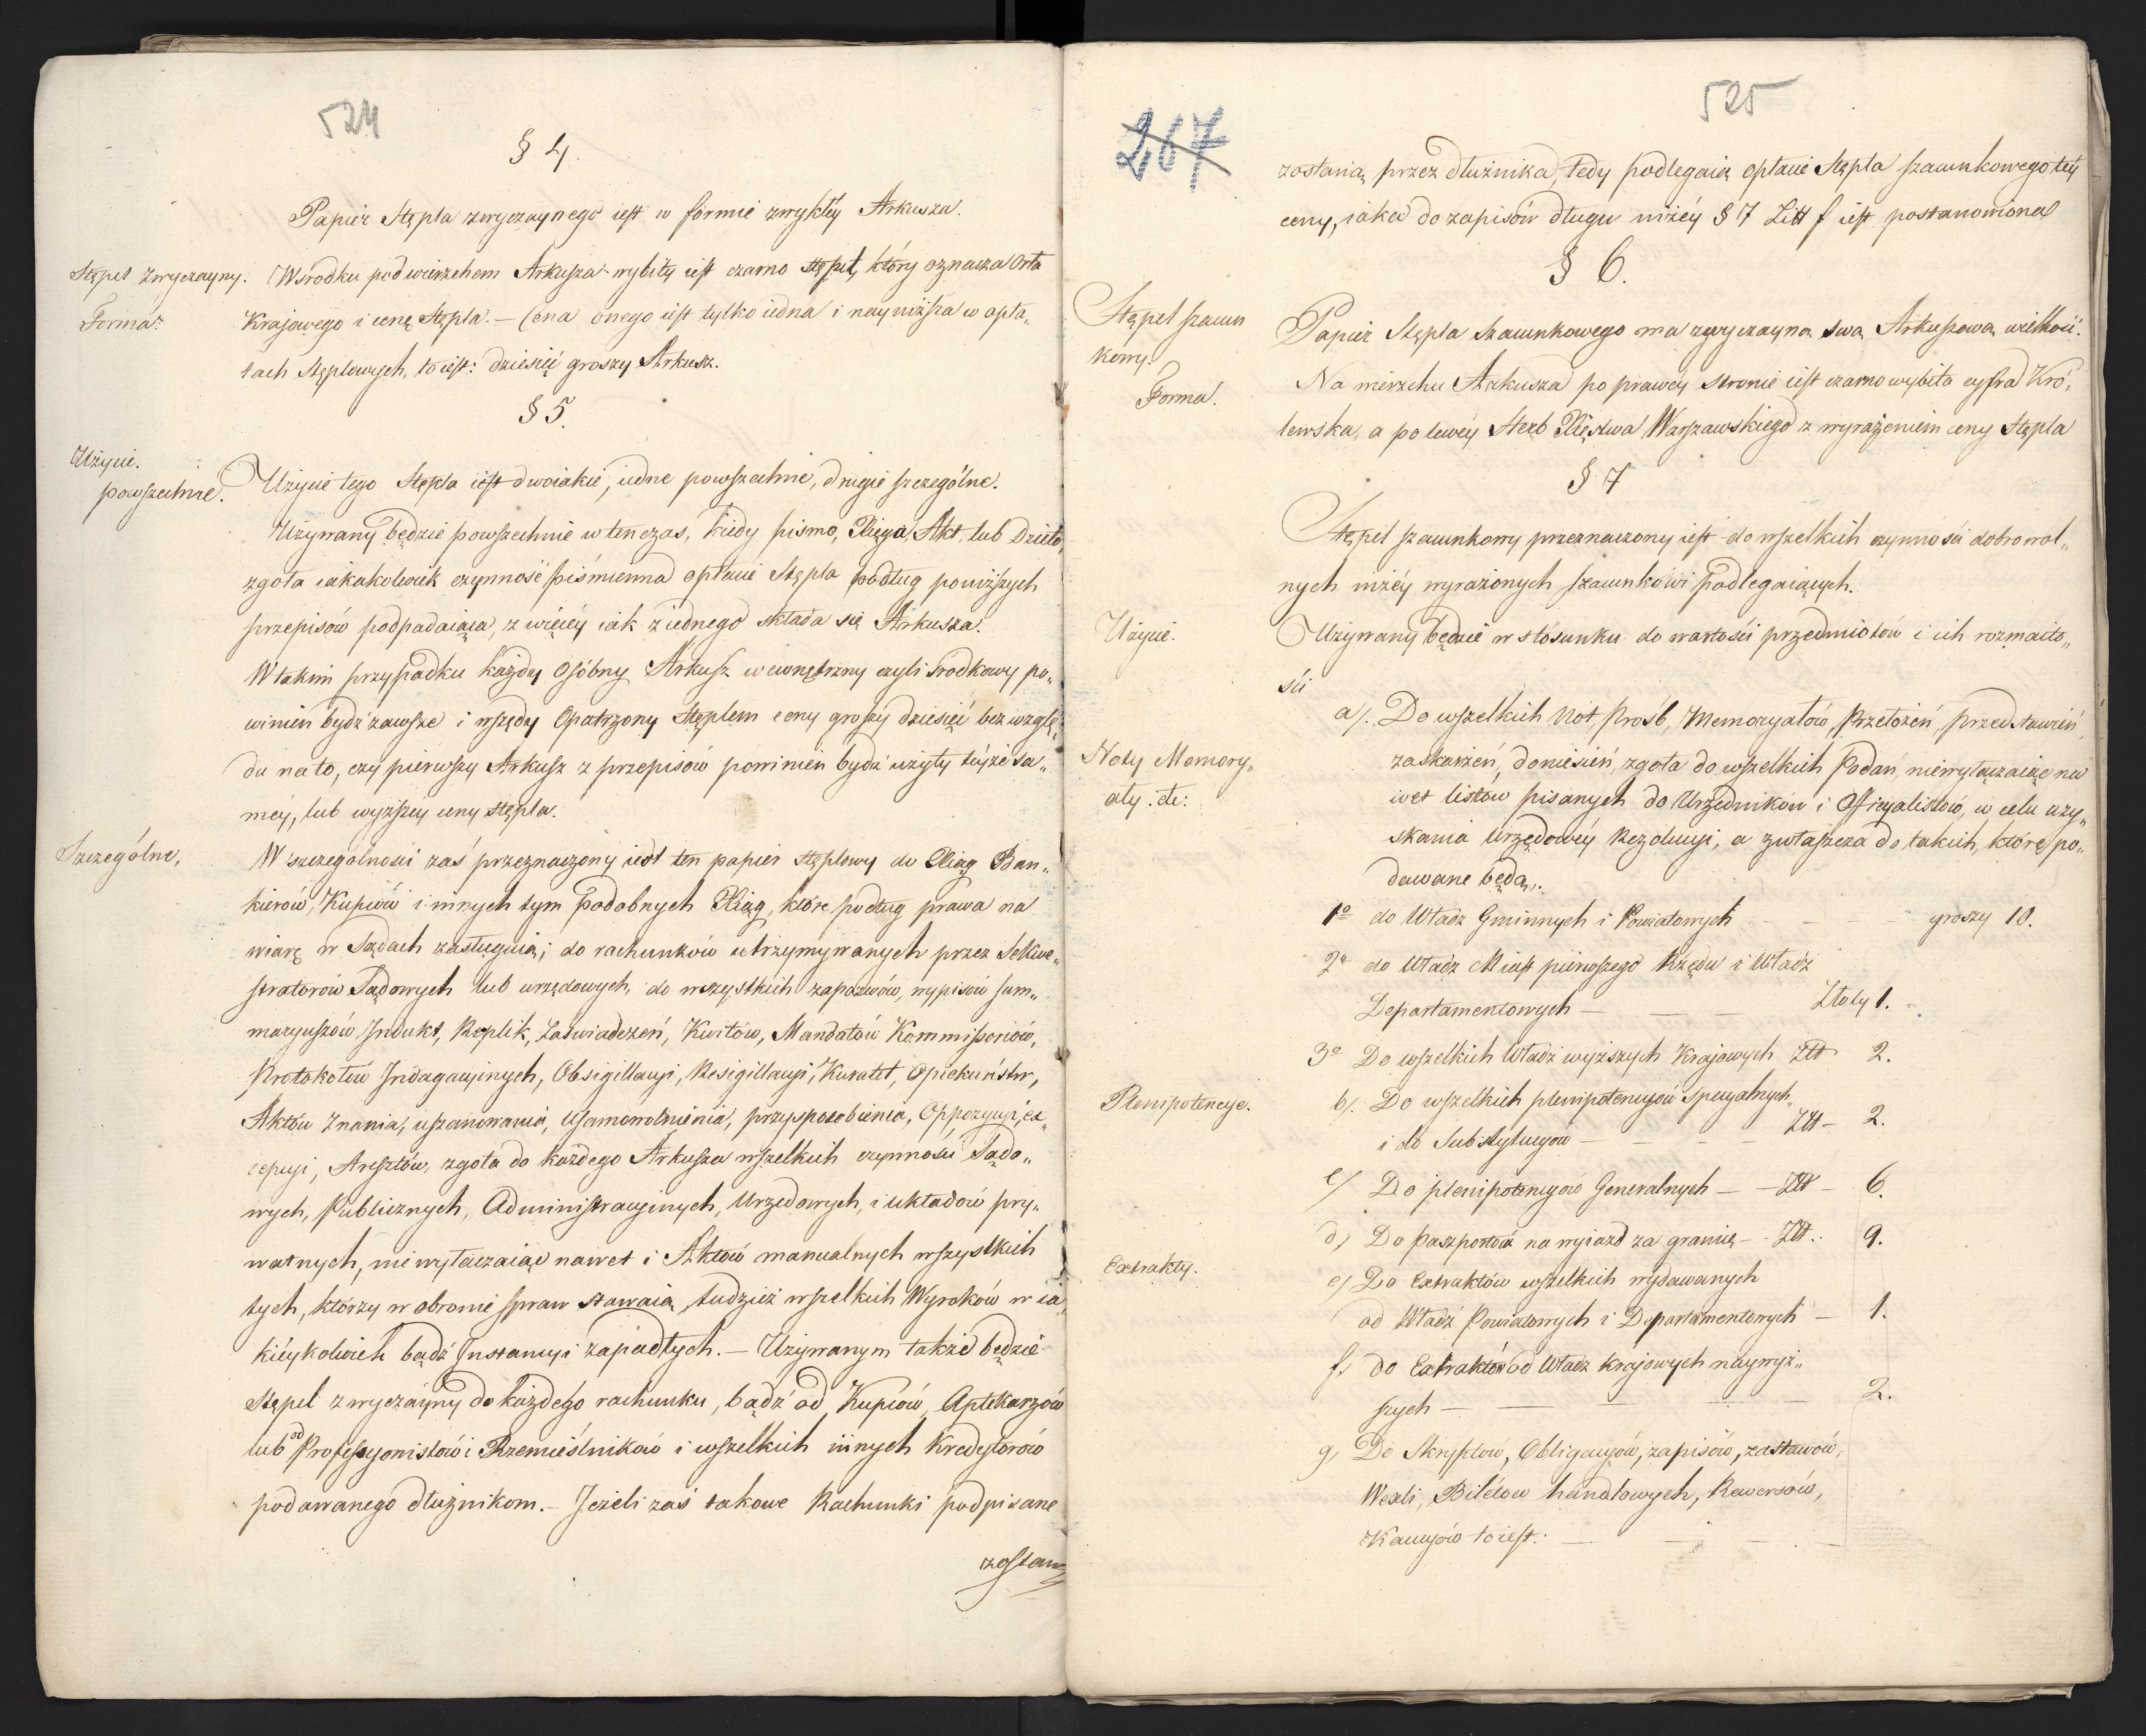 524
§ 4.
Papier Stępla zwyczaynego iest w formie zwykłey Arkusza.
Stępel zwyczayny.
Forma.
Wsrodku pod wierzchem Arkusza wybity iest czarno stępel, który oznacza Orła
Krajowego i cenę Stępla. — Cena onego iest tylko iedna i nayniższa w opła„
tach Stęplowych, to iest: dziesięć groszy Arkusz.
§ 5.
Użycie.
powszechne.
Użycie tego Stępla iest dwoiakie, iedne powszechne, drugie szczególne.
Używany będzie powszechnie wtenczas, kiedy pismo, Xięga, Akt, lub Dzieło
zgoła iakakolwiek czynność piśmienna opłacie Stępla podług poniższych
przepisów podpadaiąca, z więcey iak z iednego składa się Arkusza.
W takim przypadku każdy Osóbny Arkusz wewnętrzny czyli srodkowy po„
winien bydź zawsze i wszędy Opatrzony Stęplem ceny groszy dziesięć bez wzglę„
du na to, czy pierwszy Arkusz z przepisów powinien bydź użyty teyże sa„
mey, lub wyższey ceny stępla.
Szczególne,
W szczególnosci zaś przeznaczony iest ten papier stęplowy do Xiąg Ban„
kierów, Kupców i innych tym podobnych Xiąg, które podług prawa na
wiarę w Sądach zasługuią; do rachunków utrzymywanych przez Sekwe„
stratorów Sądowych lub urzędowych, do wszystkich zapozwów, wypisów sum„
maryuszów Indukt, Replik, Zaświadczeń, Kwitów, Mandatów Kommissoriów,
Protokołów Indagacyinych, Obsigillacyi, Resigillacyi, Kuratel, Opiekuństw,
Aktów Znania, uszanowania, Usamowolnienia, przysposobienia, Oppozycyi, ex„
cepcyi, Aresztów, zgoła do każdego Arkusza wszelkich czynności Sądo„
wych, Publicznych, Administracyinych, Urzędowych, i układów pry„
watnych, nie wyłaczaiąc nawet i Aktów manualnych wszystkich
tych, którzy w obronie spraw stawaią, tudzież wszelkich Wyroków w ia„
kieykolwiek bądź Instancyi zapadłych. — Używanym także będzie
Stępel zwyczayny do każdego rachunku, bądź od Kupców, Aptekarzów
lub od Professyonistów i Rzemieślników i wszelkich innych Kredytorów
podawanego dłużnikom. — Jeżeli zaś takowe Rachunki podpisane
zostaną
267
525
zostaną przez dłużnika, tedy podlegaią opłacie Stępla szacunkowego tey
ceny, iaka do zapisów długu niżey § 7 Litt f iest postanowiona
§ 6.
Stępel szacun
kowy.
Forma.
Papier Stępla Szacunkowego ma zwyczayną swą Arkuszową wielkość.
Na wierzchu Arkusza po prawey stronie iest czarno wybita cyfra Kró„
lewska, a po lewey Herb Xięstwa Warszawskiego z wyrażeniem ceny Stępla
§ 7
Stępel szacunkowy przeznaczony iest do wszelkich czynności dobrowol„
nych niżey wyrażonych szacunkowi podlegaiących.
Użycie.
Używany będzie w stosunku do wartości przedmiotów i ich rozmaito„
ści
Noty Memory„
ały. etc:
a). Do wszelkich Not, Prośb, Memoryałów, Przełożeń, przedstawień,
zaskarżeń, doniesień, zgoła do wszelkich Podań, niewyłączaiąc na
wet listów pisanych do Urzędników i Officyalistów, w celu uzy„
skania Urzędowey Rezolucyi, a zwłaszcza do takich, które po„
dawane będą,.
1o do Władz Gminnych i Powiatowych — — groszy 10.
2o do Władz Miast pierwszego Rzędu i Władz
Departamentowych — — — Złoty 1.
3o Do wszelkich Władz wyższych Krajowych Złł 2.
Plenipotencye.
b). Do wszelkich plenipotencyów Specyalnych,
i do Substytucyów — — — — Złł — 2.
c) Do plenipotencyów Generalnych — — Złł — 6.
d) Do Paszportów na wyiazd za granicę — Złł.. 9.
Extrakty.
e) Do Extraktów wszelkich wydawanych
od Władz Powiatowych i Departamentowych — 1.
f) do Extraktów od Władz krajowych naywyż„
szych — — — — — 2.
g) Do Skryptów, Obligacyów, zapisów, zastawów,
Wexli, Biletów handlowych, Rewersów,
Kaucyów to iest: — — — —